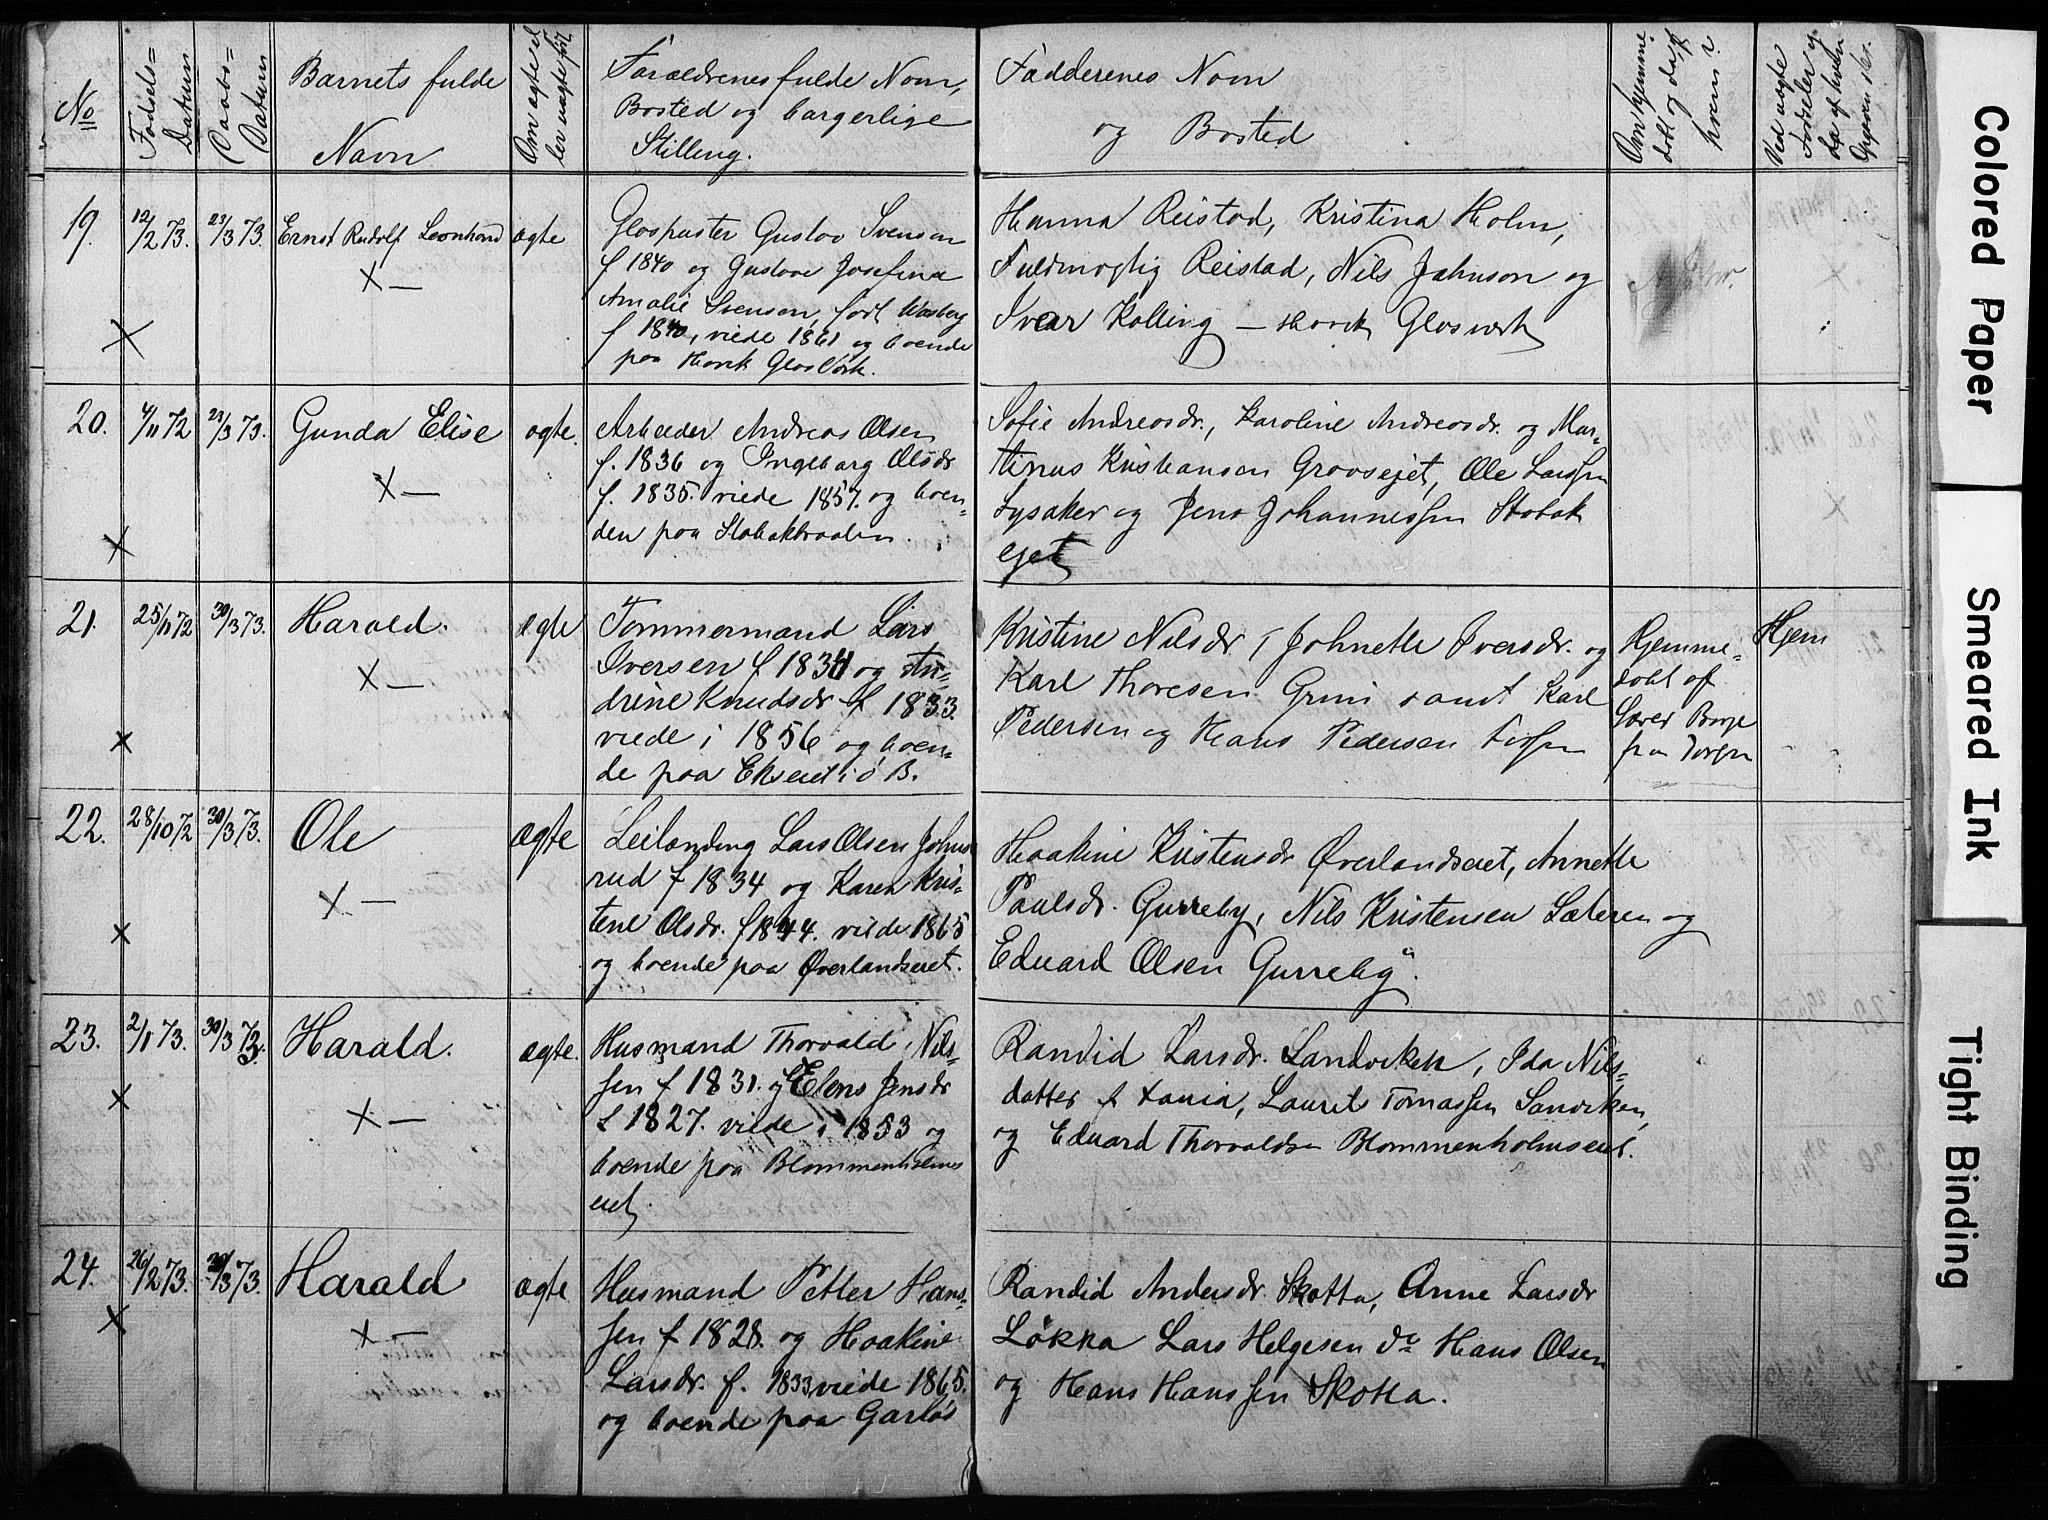 No
Fødsels=
Datum
Daabs=
Datum
Barnets fulde
Navn
Om ægte el
ler uægte født
Forældrenes fulde Navn,
Bosted og borgerlige
Stilling.
Fadderenes Navn
og Bosted
Om hjemme
døbt og da af
hvem?
Ved uægte
Fødseler
19.
12/2 73.
23/3 73.
Ernst Rudolf Leonhard
X —
ægte
Glaspuster Gustav Svensen
f 1840 og Gustava Josefina
Amalie Svensen, født Wasberg
f 1840, viede 1861 og boende
paa Høvik Glasværk.
Hanna Reistad, Kristina Holm,
Fuldmægtig Reistad, Nils Johnson og
Ivar Kolling — Høvik Glasværk
X
20.
4/11 72
23/3 73.
Gunda Elise
X —
ægte.
Arbeider Andreas Olsen
f. 1836 og Ingeborg Olsdr
f. 1835. viede 1857. og boen
den paa Stabakbraaten.
Sofie Andreasdr., Karoline Andreasdr. og Mar-
tinus Kristiansen Gravsejet, Ole Larssen
Lysaker og Jens Johannessen Stabak
ejet
X
21.
25/11 72
30/3 73.
Harald.
X —
ægte
Tømmermand Lars
Iversen f 1831 og An=
drine Knudsdr f 1833.
viede i 1856 og boen-
de paa Ekseiet i Ø B.
Kristine Nilsdr, Johnette Iversdr. og
Karl Thoresen Grini samt Karl
Pedersen og Hans Pedersen Fossen
Hjemme=
døbt af
fra
Hjem
X
22.
28/10 72
30/3 73.
Ole
X —
ægte
Leilænding Lars Olsen Johns
rud f 1834 og Karen Kris-
tene Olsdr. f 1844. viede 1865
og boende paa Øverlandseiet.
Haakine Kristensdr Øverlandseiet, Annette
Paulsdr. Gurreby, Nils Kristensen Sæteren og
Eduard Olsen Gurreby.
X
23.
2/1 73.
30/3 73.
Harald.
X —
ægte.
Husmand Thorvald Nils-
sen f 1831. og Elens Jensdr
f 1827. viede i 1853 og
boende paa Blommenholmes
eiet.
Randid Larsdr. Sandviken, Ida Nils-
datter f Xania, Laurits Tomassen Sandviken,
og Eduard Thorvaldsen Blommenholmseiet.
X
24.
26/2 73.
30/3 73.
Harald
X —
ægte
Husmand Petter Hans-
sen f 1828. og Haakine
Larsdr. f. 1833, viede 1865.
og boende paa Garløs
Randid Andersdr Skotta, Anne Larsdr
Løkka Lars Helgesen do Hans Olsen
og Hans Hanssen Skotta.
X
Colored Paper
Smeared Ink
Tight Binding